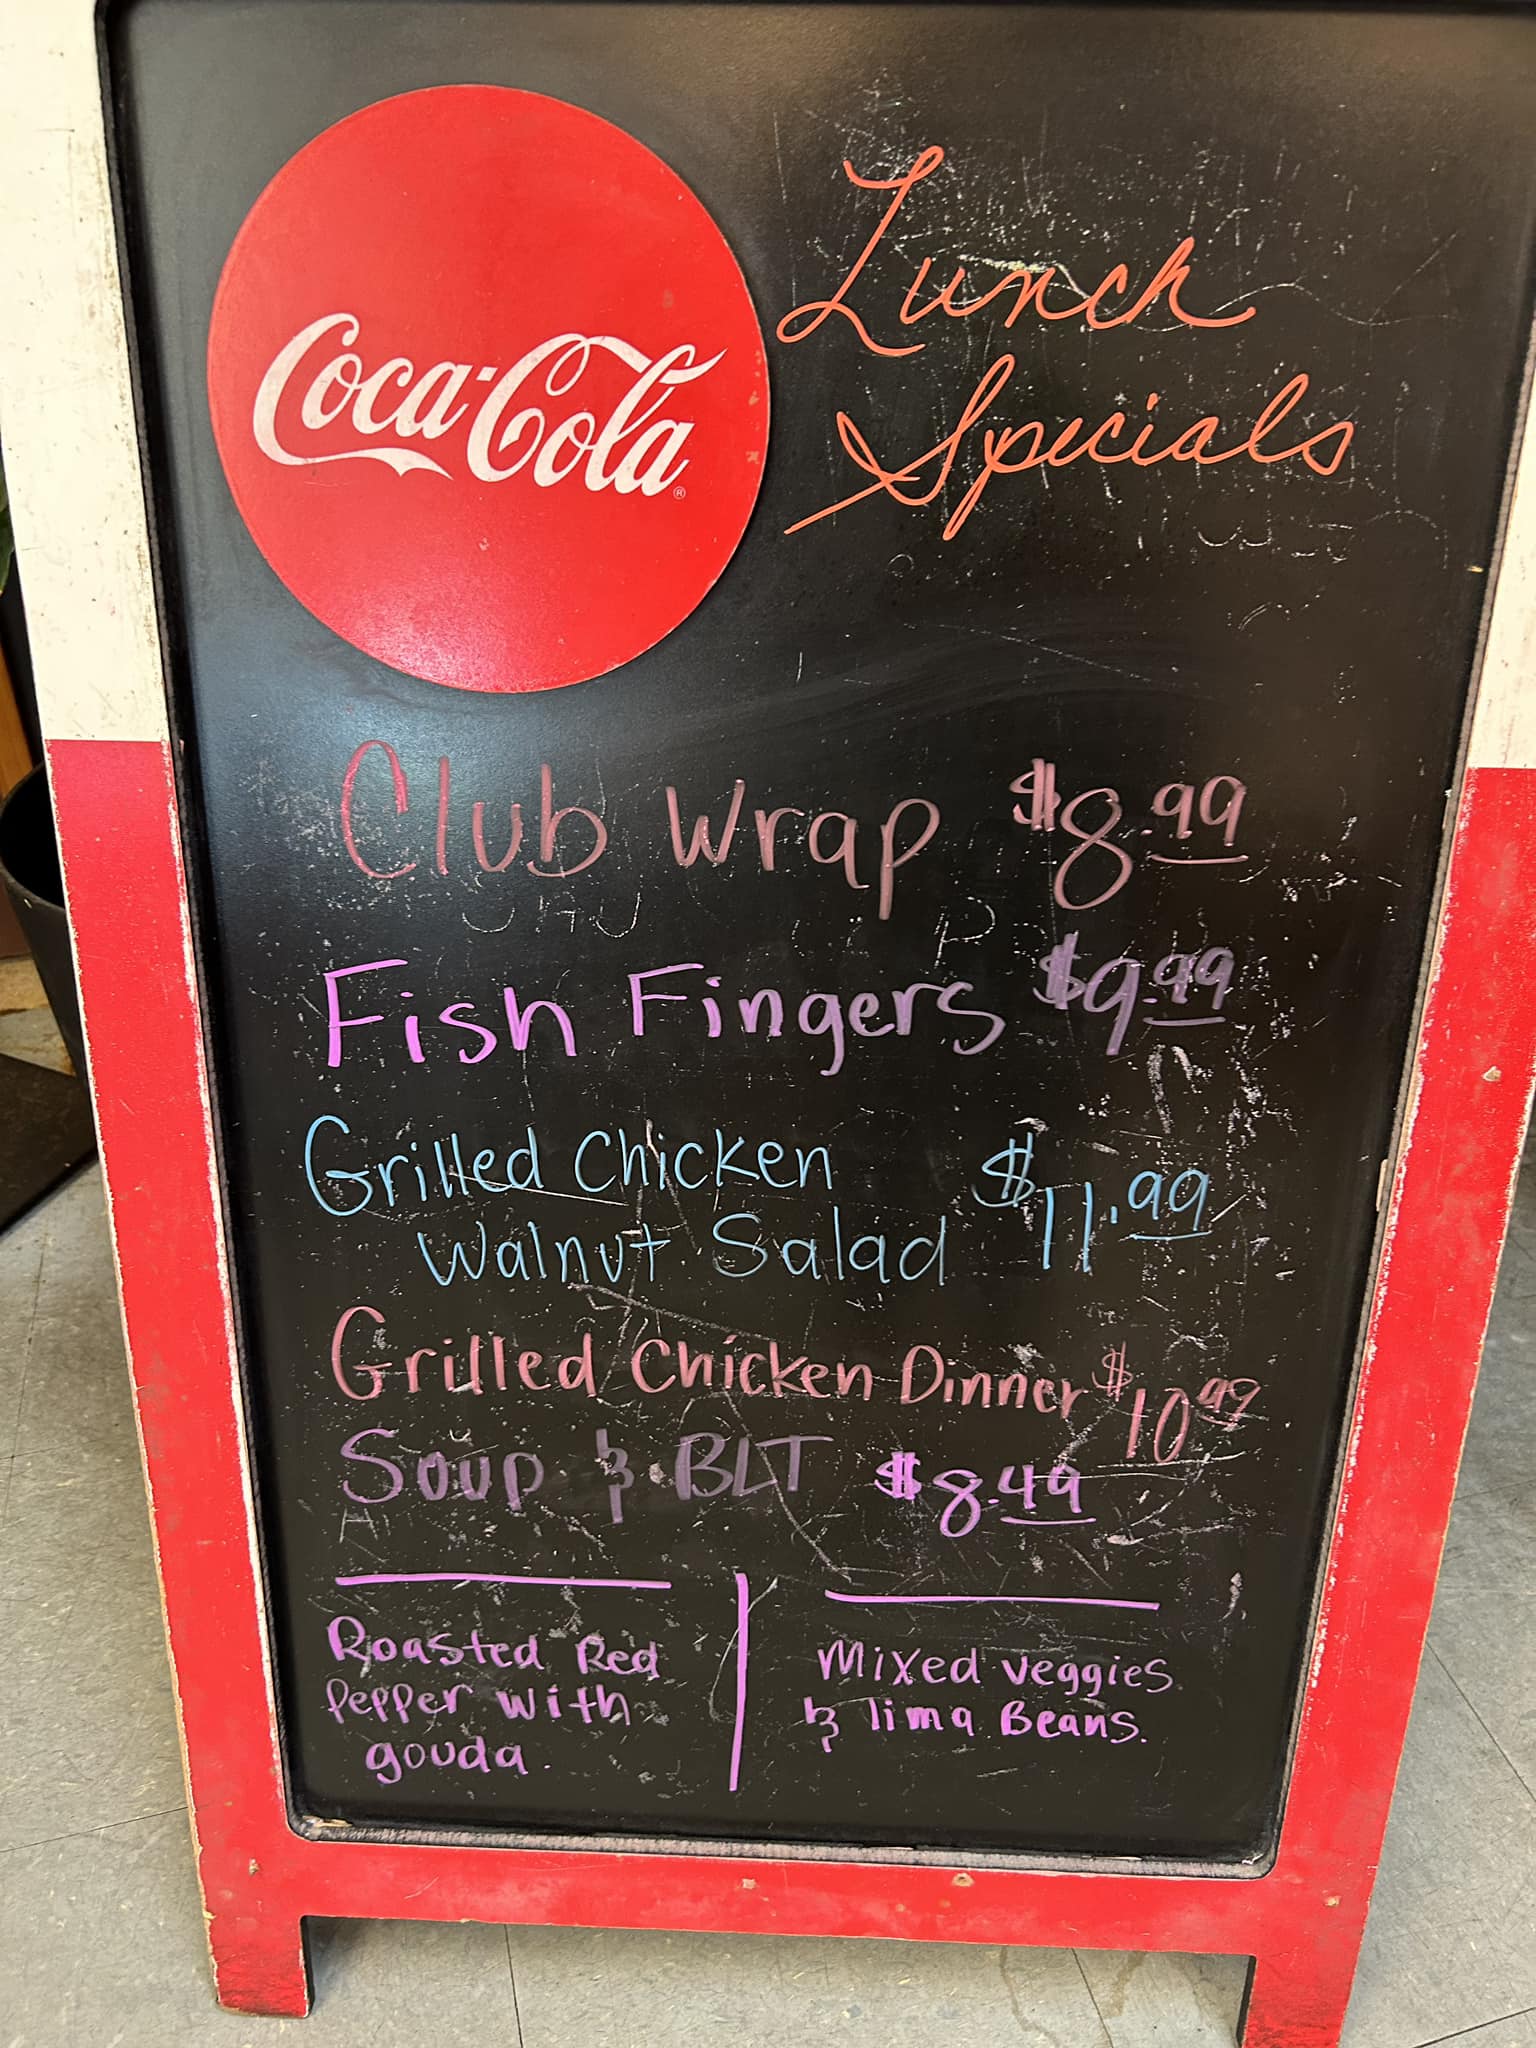 Coca-Cola®
Lunch
Specials
Club Wrap $8.99
Fish Fingers $9.99
Grilled Chicken
Walnut Salad $11.99
Grilled Chicken Dinner $10.99
Soup & BLT $8.49
Roasted Red
Pepper with
gouda.
Mixed veggies
& lima Beans.